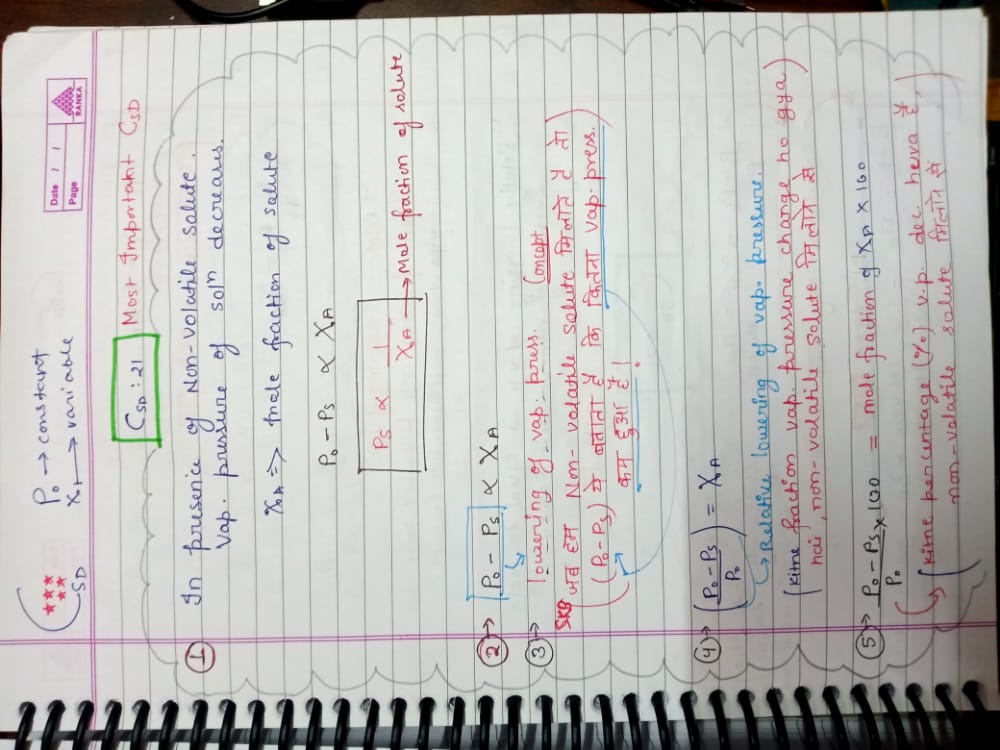 P₀ → constant
X_A → variable
CSD
Date / /
Page
RANKA
CSD : 21 Most Important CSD
① In presence of Non-volatile solute.
Vap. pressure of solⁿ decreases.
X_A ⇒ mole fraction of solute
P₀ - Ps ∝ X_A
Ps ∝ 1/X_A → Mole fraction of solute
② → P₀ - Ps ∝ X_A
③ → lowering of vap. press. Concept
SKB जब हम Non-volatile solute मिलाते है तो
(P₀-Ps) ये बताता है कि कितना vap. press.
कम हुआ है !
④ → (P₀-Ps/P₀) = X_A
→ Relative lowering of vap. pressure.
(kitne fraction vap. pressure change ho gya
hai, non-volatile solute मिलाने से)
⑤ → P₀-Ps/P₀ × 100 = mole fraction of X_A × 100
(kitne percentage (%) v.p. dec. hua है,
non-volatile solute मिलाने से